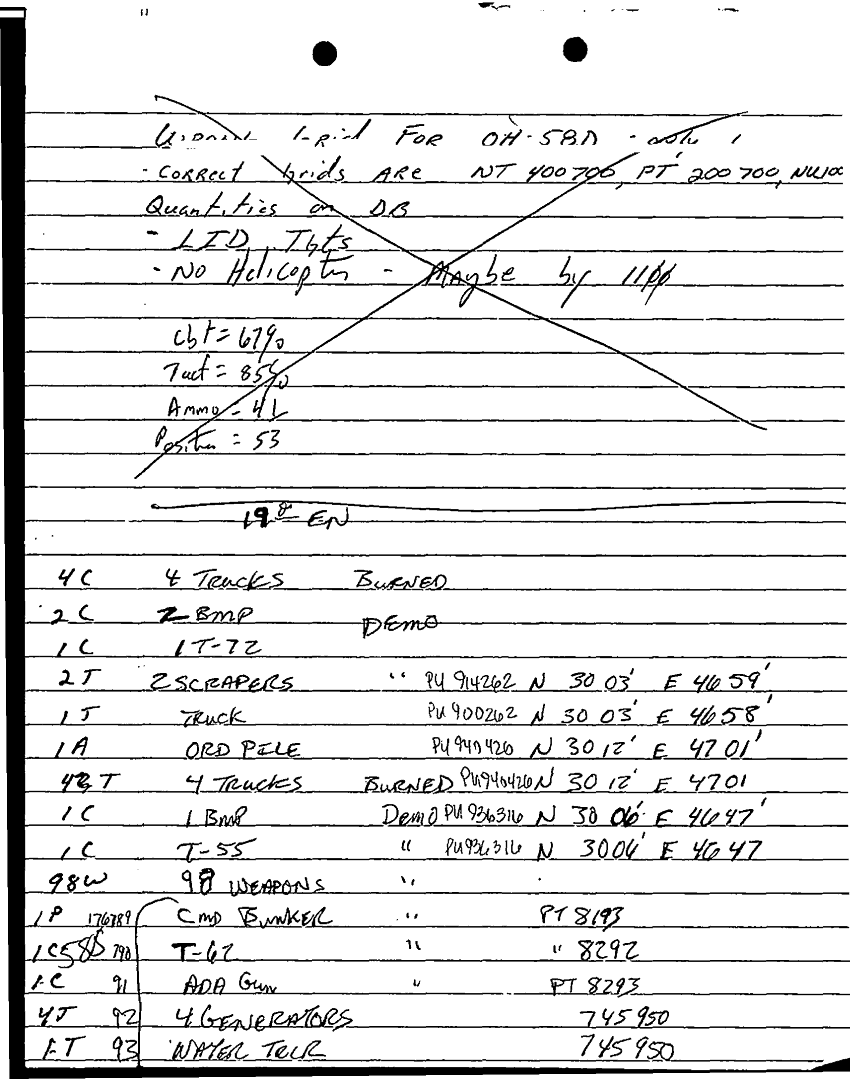 For OH-58D - note 1
- Correct Grids ARe NT 400700, PT 200700, NU100
Quantities on DB
- LTD Tgts
- No Helicopter - Maybe by 1100
Cbt = 67%
Tact = 85%
Ammo = 41
Position = 53
19th EN
4 C 4 Trucks Burned
2 C 2 BMP Demo
1 C 1 T-72
2 T 2 SCRAPERS " PU 914262 N 30 03' E 46 59'
1 T Truck PU 900262 N 30 03' E 46 58'
1 A ORD PILE PU 940420 N 30 12' E 47 01'
T 4 Trucks Burned PU940420 N 30 12' E 47 01
1 C 1 Bmp Demo PU 936316 N 30 06' E 46 47'
1 C T-55 " PU936316 N 30 06' E 46 47
98W 98 WEAPONS "
1 P 176789 Cmd Bunker " PT 8193
1 C 790 T-62 " " 8292
1 C 91 ADA Gun " PT 8293
4T 92 4 GENERATORS 745950
1 T 93 WATER TRLR 745950